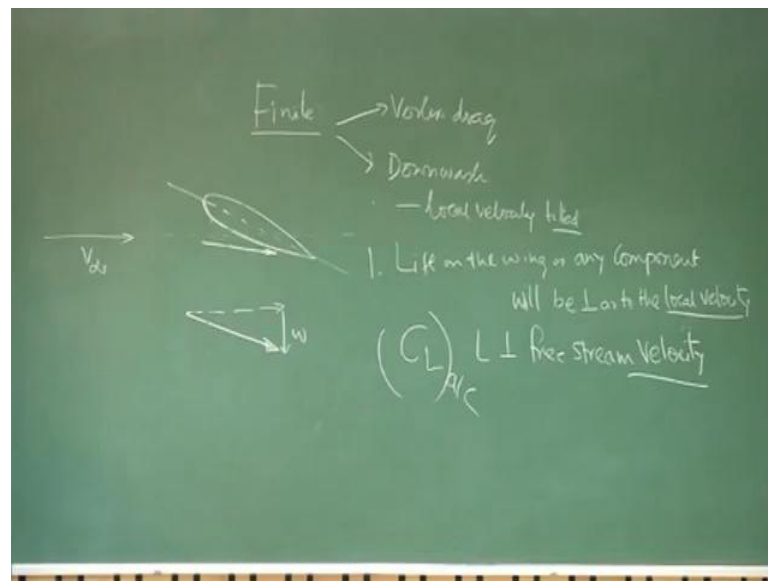 Finite → Vortex drag
→ Downwash
— local velocity tilted
V∞
1. Lift on the wing or any component
will be ⊥ar to the local velocity
w
(C_L)A/C L ⊥ free stream velocity